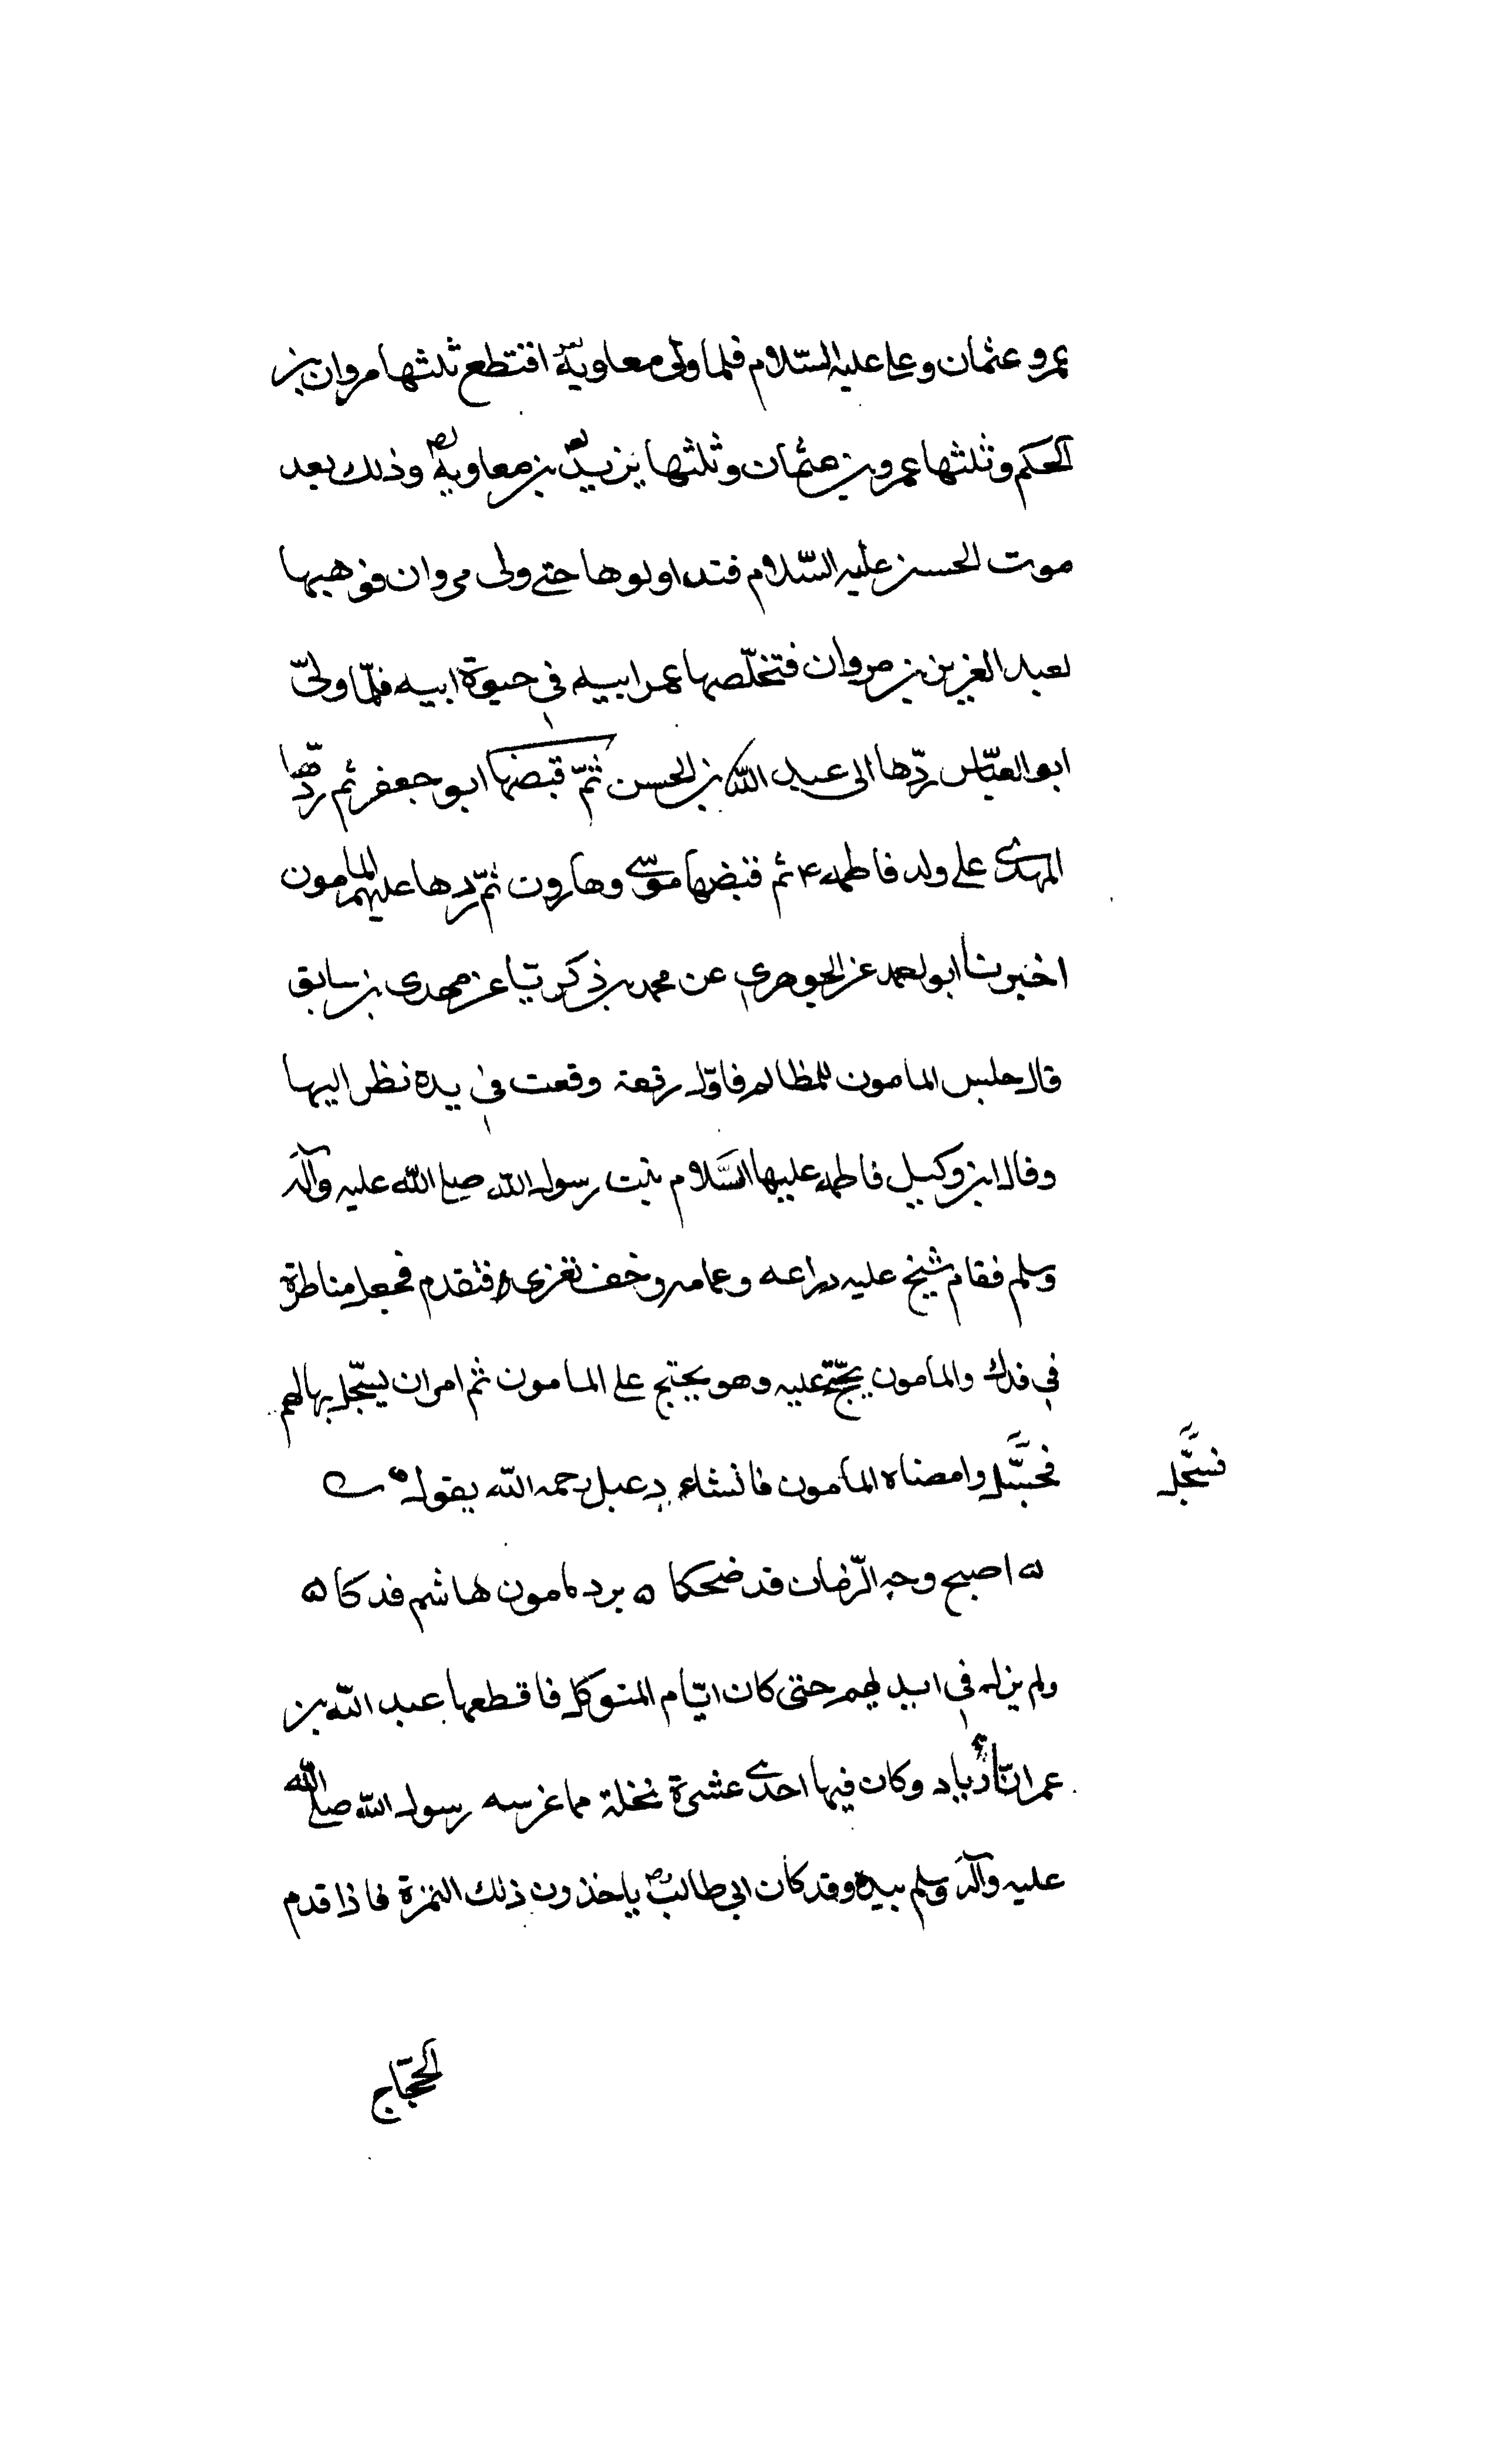 عمر و عثمان و علي عليه السّلام فلما ولى معاوية اقتطع ثلثها مروان بن
الحكم و ثلثها عمرو بن عثمان و ثلثها يزيد بن معاوية و ذلك بعد
موت الحسن عليه السّلام فتداولوها حتى ولى مروان فوهبها
لعبد العزيز بن مروان فتخلّصها عمر ابيه في حيوة ابيه فلمّا ولّى
ابو العبّاس ردّها الى عبد الله بن الحسن ثمّ قبضها ابو جعفر ثم ردّها
المهدى على ولد فاطمه ع ثم قبضها موسى وهارون ثمّ ردها عليهم المامون
اخبرنا ابو احمد عن الجوهري عن محمد بن ذكريّا عن مهدى بن سابق
قال جلس المامون للمظالم فاوّل رقعة وقعت في يده نظر اليها
وقال اين وكيل فاطمه عليها السَّلام بنت رسول الله صلى الله عليه وآله
وسلم فقام شيخ عليه دراعه وعمامه وخف تغزى فتقدم فجعل مناظرة
في فدك والمأمون يحتجّ عليه وهو يحتج على المامون ثم امر ان يسجّل بها لهم
فسجّل
فحبسَّل وامضاه المأمون فانشاء دعبل رحمه الله يقول
اصبح وجه الزّمان قد ضحكا ۵ برد مامون هاشم فدكا ۵
ولم يزل في ايديهم حتى كان ايّام المتوكل فاقطعها عبد الله بن
عمر وكان فيها احدى عشرة نخلة مما غرسه رسول الله صلى الله
عليه وآله وسلم بيده وقد كان ابي طالب ياخذون ذلك التمرة فاذا قدم
الحجّاج